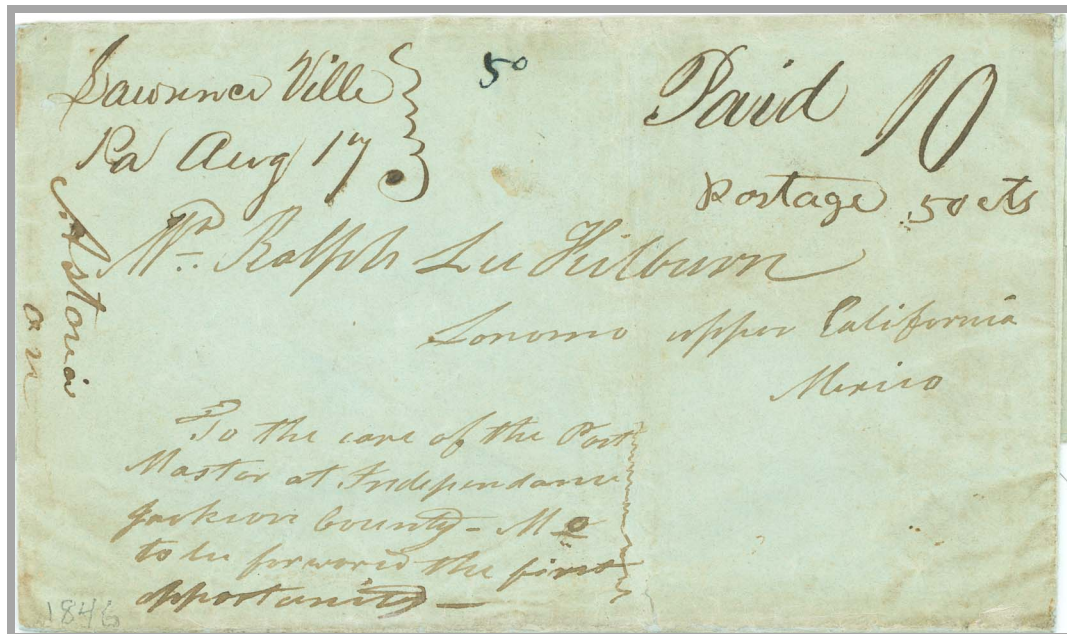 Lawrence Ville
Pa Aug 17
50
Paid 10
Postage 50 cts
Mr. Ralph Lee Kilburn
Sonoma upper California
Mexico
Astoria
To the care of the Post
Master at Independance
Jackson County - Mo
to be forword the first
opportunity -
1846